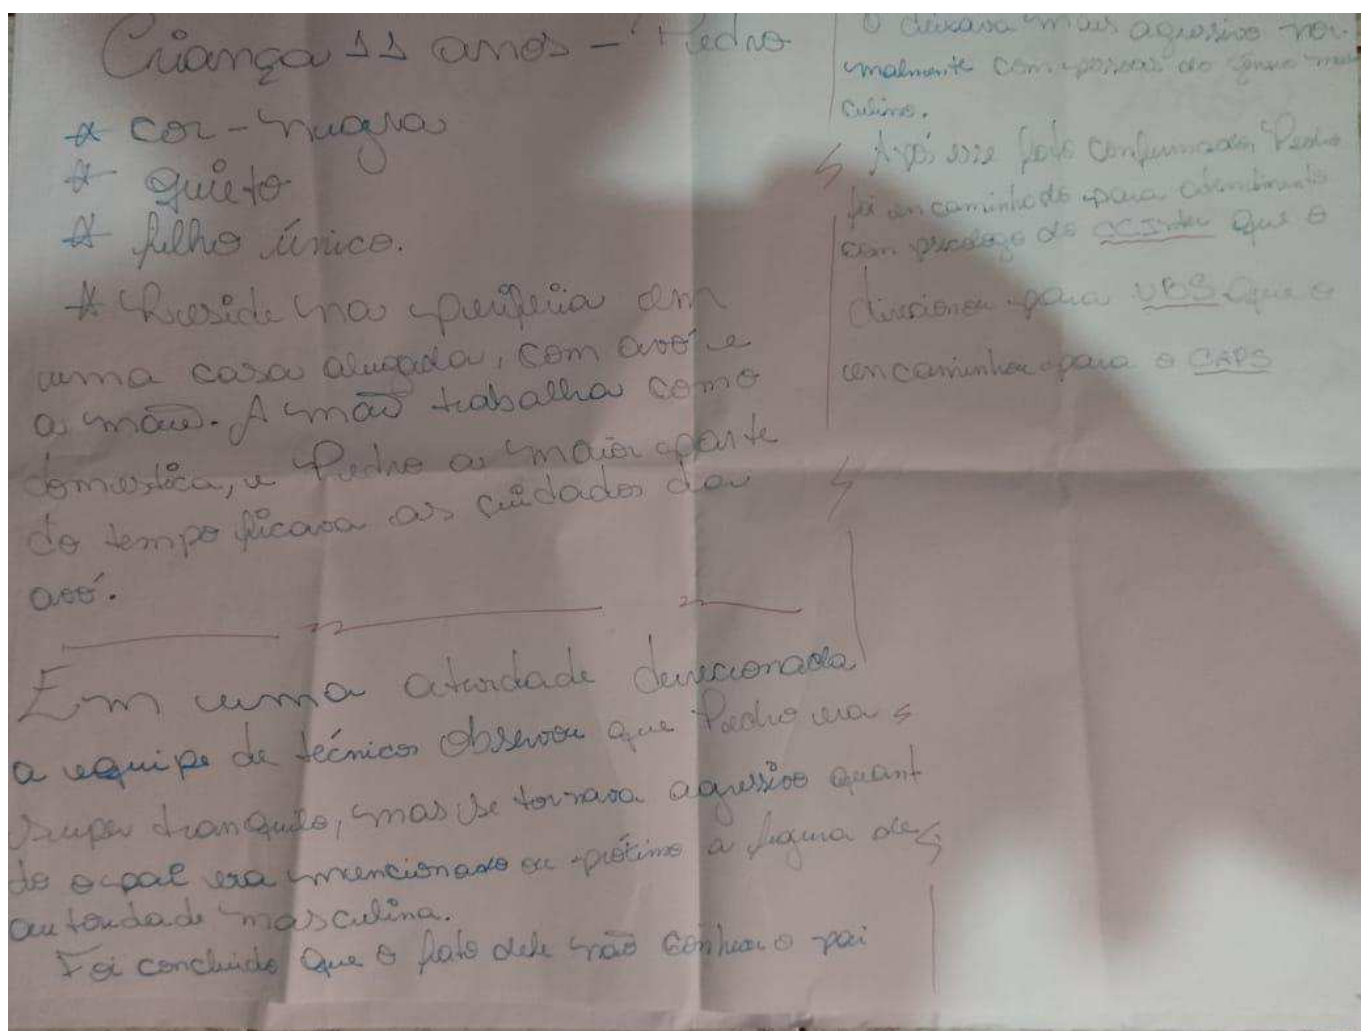 Criança 11 anos - Pedro
* cor - negra
* quieto
* filho único.
* Reside na periferia em
uma casa alugada, com avó e
a mãe. A mãe trabalha como
domestica, e Pedro a maior parte
do tempo ficava as cuidados da
avó.
Em uma atividade direcionada
a equipe de técnicos observou que Pedro era
super tranquilo, mas se tornava agressivo quant
do o pai era mencionado ou próximo a figura de
autoridade masculina.
Foi concluido que o fato dele não conhecer o pai
o deixava mais agressivo nor-
malmente com pessoas do gênero mas
culino.
Após esse fato confirmado, Pedro
foi encaminhado para atendimento
com psicologo do que o
direcionou para UBS que o
encaminhou para o CAPS